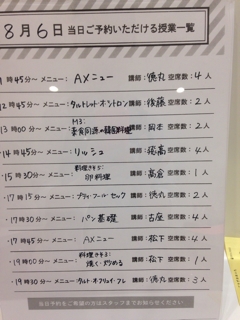 8月6日 当日ご予約いただける授業一覧
時45分〜 メニュー: AXメニュー 講師: 徳丸 空席数: 4人
12時45分〜 メニュー: タルトレット・シトロン 講師: 後藤 空席数: 2人
M3:
13時00分〜 メニュー: 薬食同源の韓国料理 講師: 岡本 空席数: 2人
14時45分〜 メニュー: リッシュ 講師: 穐高 空席数: 4人
料理きそ5:
15時30分〜 メニュー: 卵料理 講師: 高倉 空席数: 1人
17時15分〜 メニュー: プティ・フール・セック 講師: 徳丸 空席数: 2人
17時30分〜 メニュー: パン基礎 講師: 古屋 空席数: 4人
17時45分〜 メニュー: AXメニュー 講師: 松下 空席数: 4人
料理きそ3:
19時00分〜 メニュー: 焼く・炒める 講師: 松下 空席数: 1人
19時30分〜 メニュー: 講師: 徳丸 空席数: 3人
当日予約をご希望の方はスタッフまでお知らせください